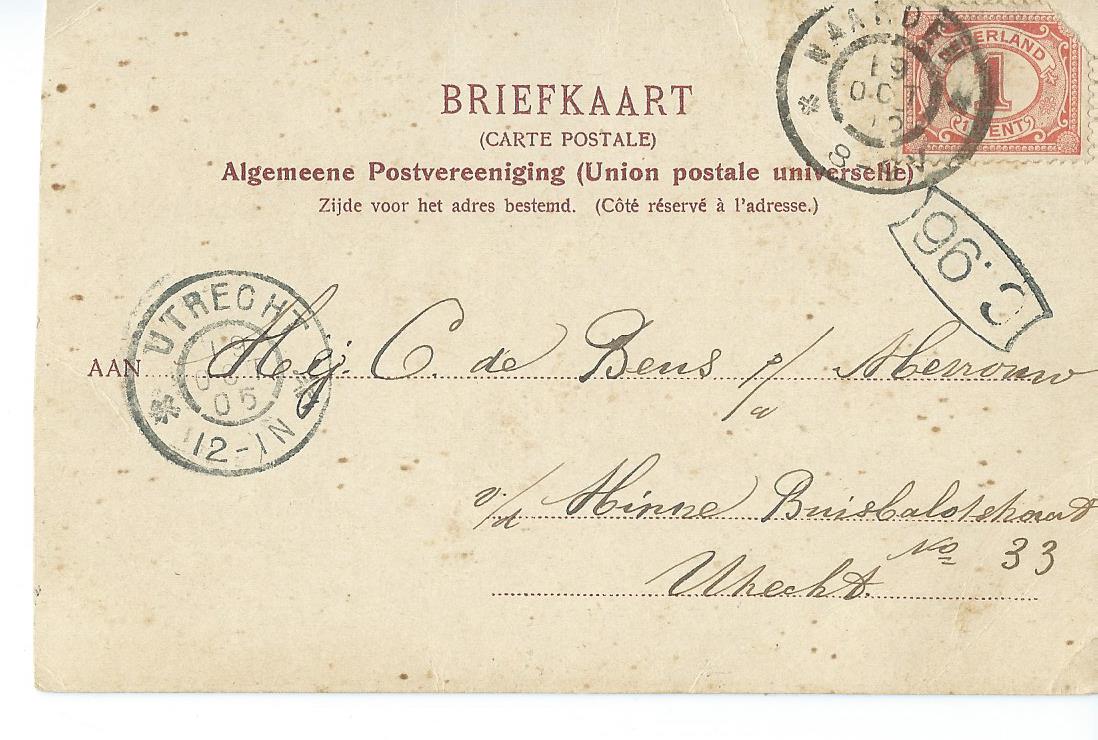 NAARDEN
19
OCT
05
8-
NEDERLAND
1
1 CENT
BRIEFKAART
(CARTE POSTALE)
Algemeene Postvereeniging (Union postale universelle)
Zijde voor het adres bestemd. (Côté réservé à l'adresse.)
C.96
UTRECHT
19
OCT
05
12-1N
AAN Mej. C. de Bens p/a Mevrouw
v/d Hinne Buisbalotshoudt
No 33
Utrecht.